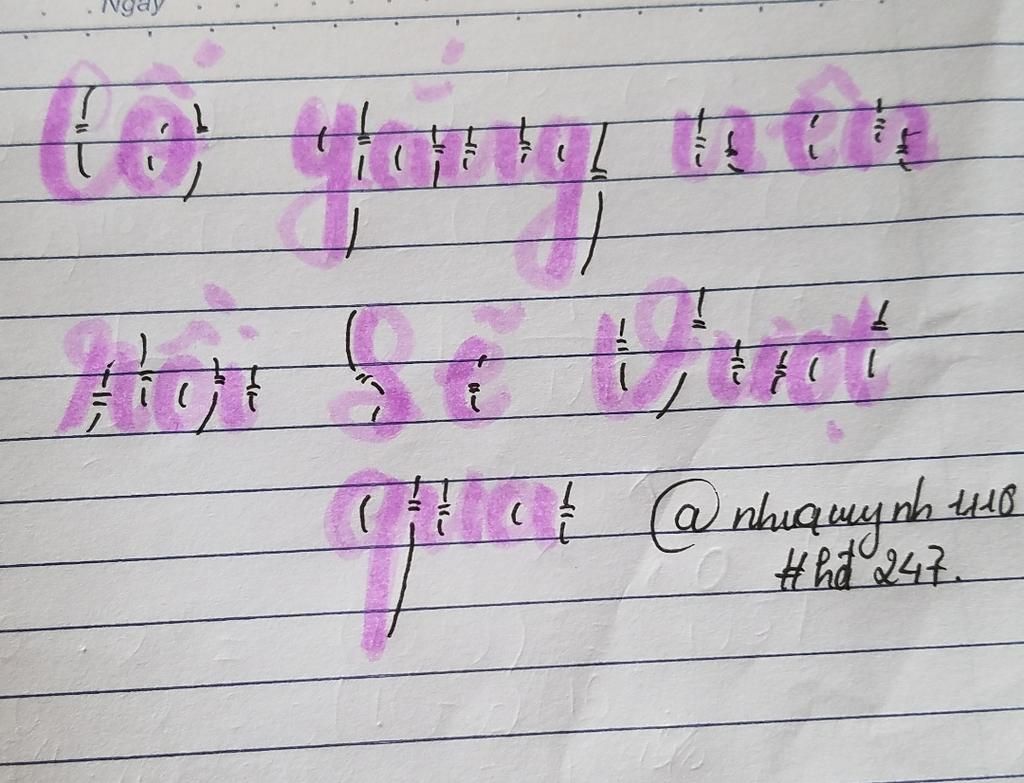 Ngày
Cố gắng nên
rồi Sẽ Vượt
qua @nhuquynh 1110
#hđ 247.